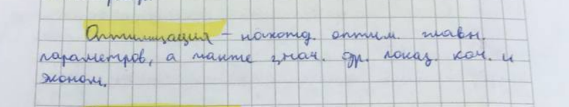 Оптимизация – нахожд. оптим. главн.
параметров, а также знач. др. показ. кач. и
эконом.